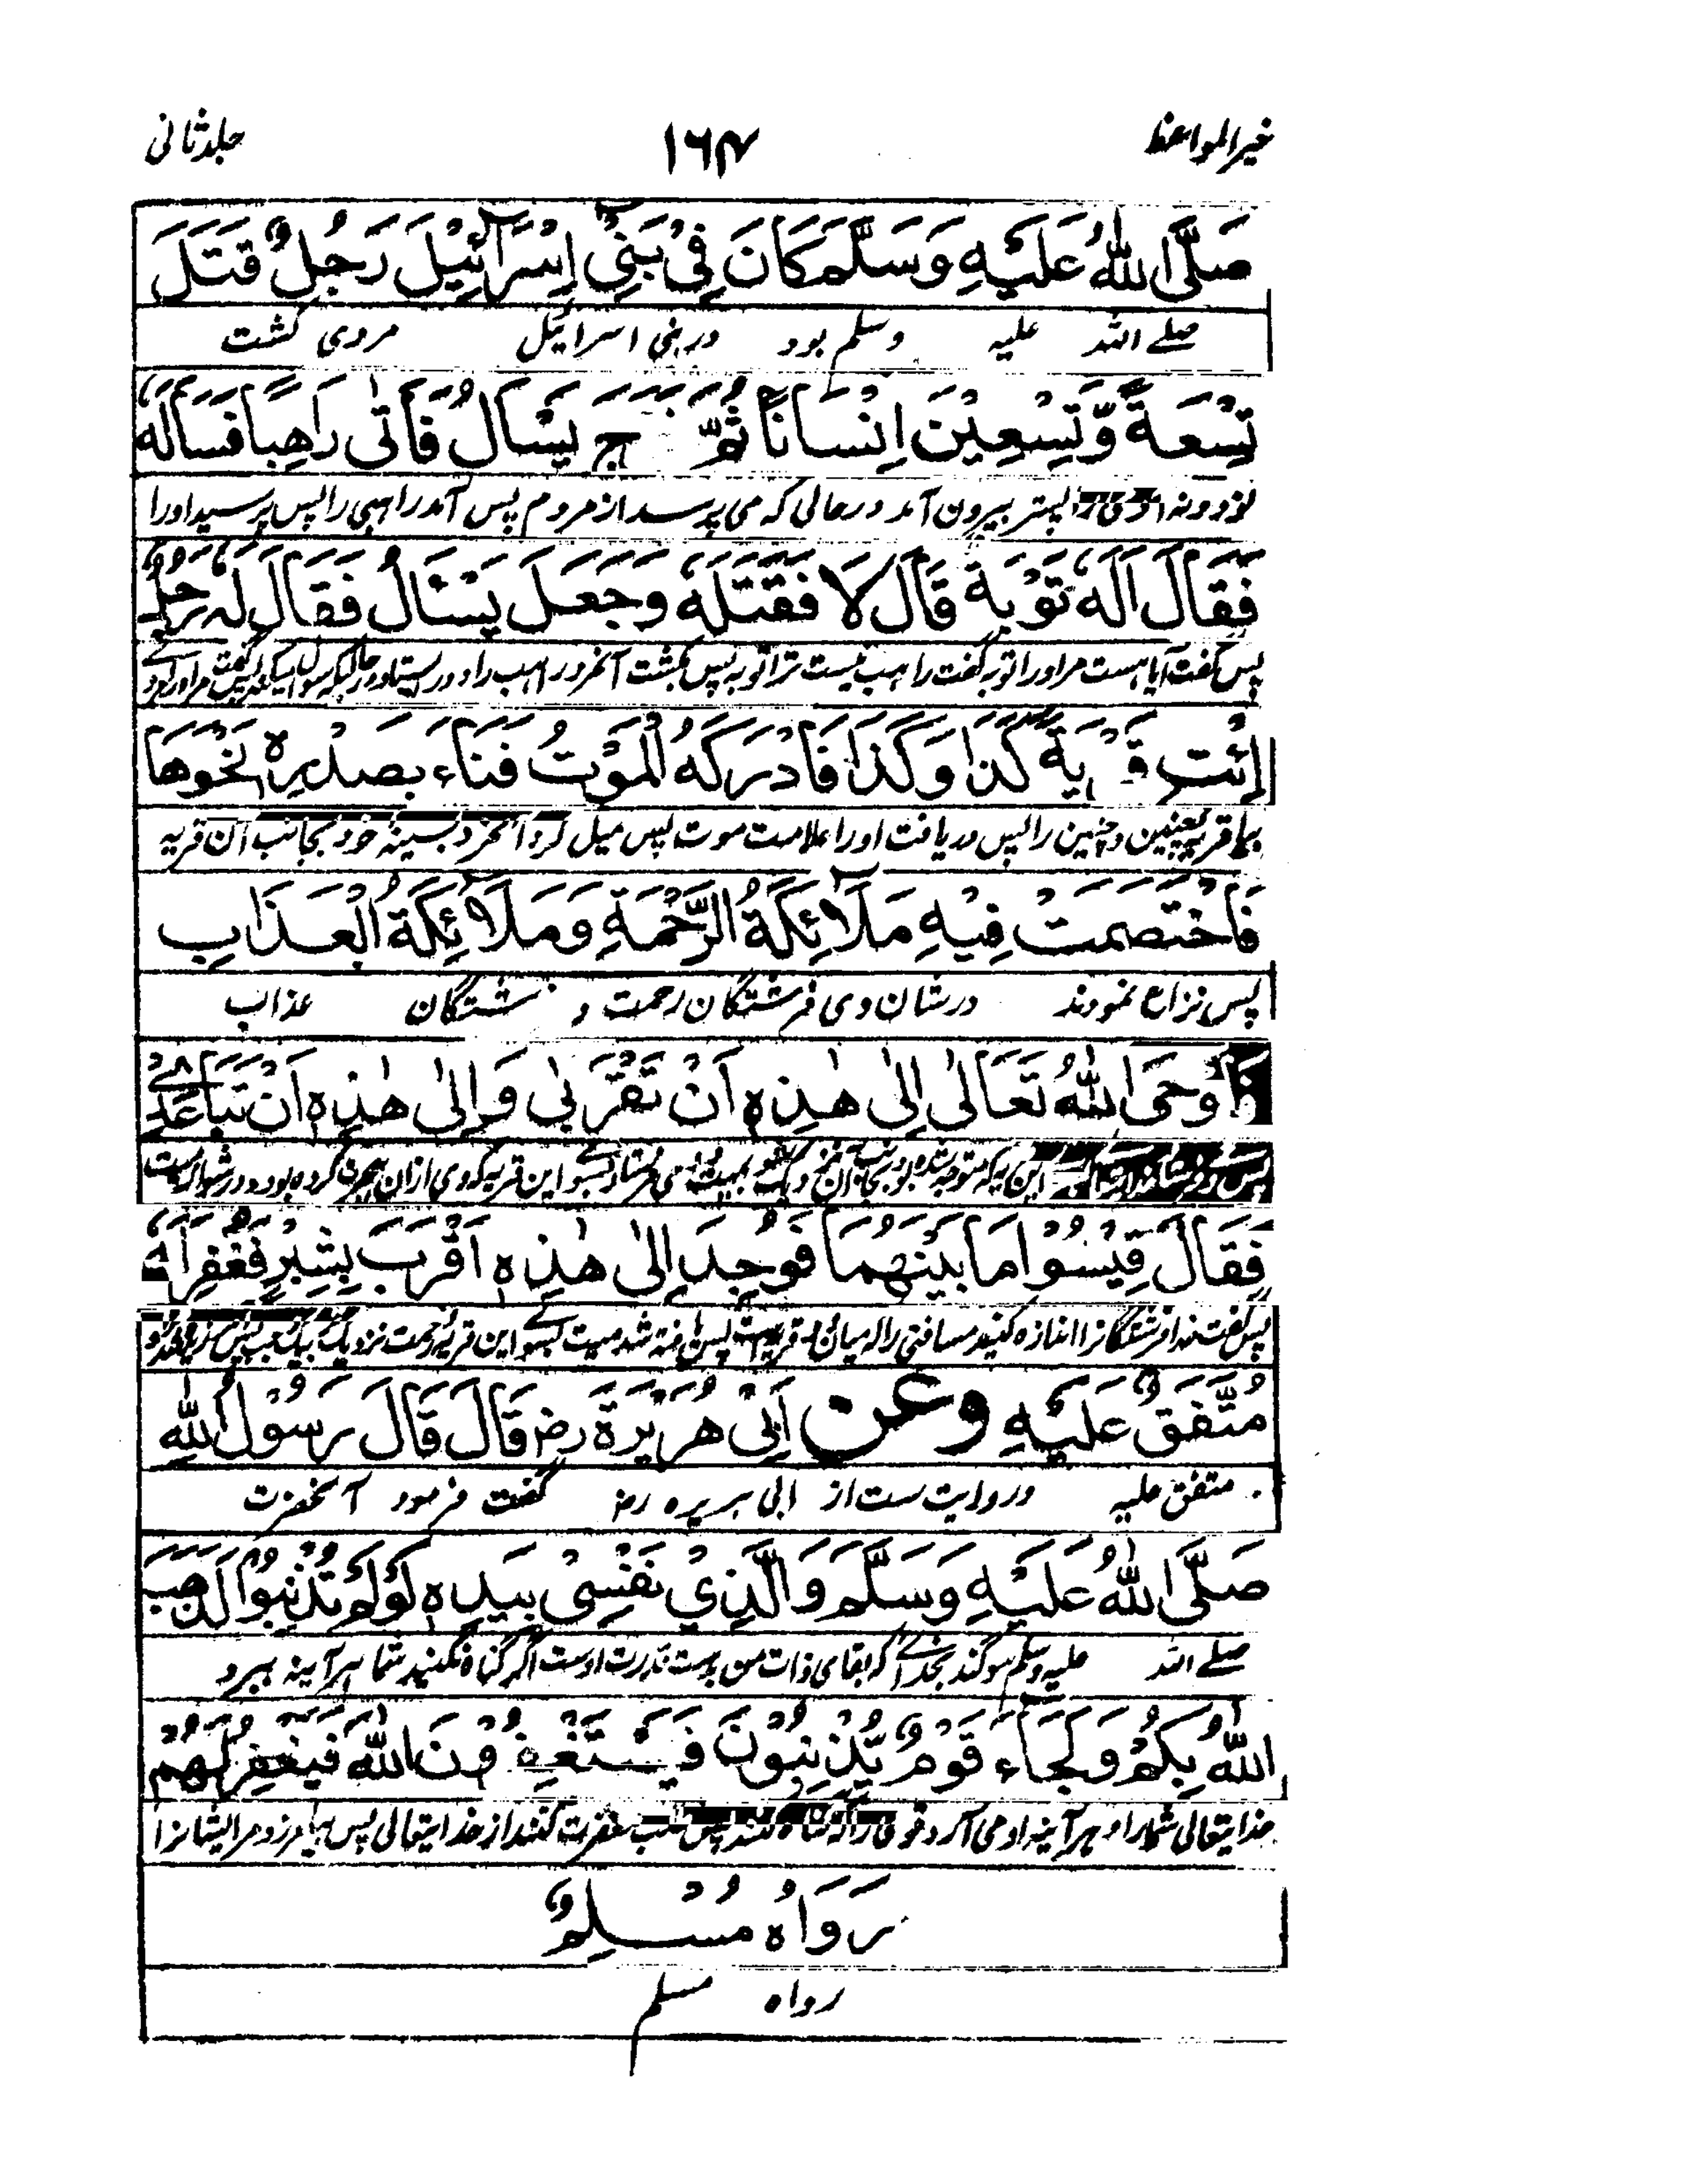 خیر المواعظ ۱۶۴ جلد ثانی
صَلَّی اللّٰهُ عَلَیْهِ وَسَلَّمَ کَانَ فِیْ بَنِیْ اِسْرَآئِیْلَ رَجُلٌ قَتَلَ
صلے اللہ علیہ وسلم بود در بنی اسرائیل مردی کشت
تِسْعَةً وَّتِسْعِیْنَ اِنْسَانًا ثُمَّ یَسْأَلُ فَأَتٰی رَاهِبًا فَسَأَلَهٗ
نود و نه را پستر بیرون آمد در حالی که می پرسد از مردم پس آمد راهبی را پس پرسید او را
فَقَالَ اَلَهٗ تَوْبَةٌ قَالَ لَا فَقَتَلَهٗ وَجَعَلَ یَسْئَالُ فَقَالَ لَهٗ رَجُلٌ
پس گفت آیا هست مر او را توبه گفت راهب نیست ترا توبه پس بکشت آنمرد راهب را و در
اِئْتِ قَرْیَةَ کَذَا وَکَذَا فَادْرَکَهُ الْمَوْتُ فَنَاءَ بِصَدْرِهٖ نَحْوَهَا
بیا قریه چنین و چنین را پس دریافت او را علامت موت پس میل کرد آنمرد بسینهٔ خود بجانب آن قریه
فَاخْتَصَمَتْ فِیْهِ مَلَآئِکَةُ الرَّحْمَةِ وَمَلَآئِکَةُ الْعَذَابِ
پس نزاع نمودند در شان وی فرشتگان رحمت و شتگان عذاب
فَاَوْحَی اللّٰهُ تَعَالٰی اِلٰی هٰذِهٖ اَنْ تَقَرَّبِیْ وَاِلٰی هٰذِهٖ اَنْ تَبَاعَدِیْ
این قریه که وی ازان هجرت کرده بود
فَقَالَ قِیْسُوْا مَا بَیْنَهُمَا فَوُجِدَ اِلٰی هٰذِهٖ اَقْرَبَ بِشِبْرٍ فَغُفِرَ لَهٗ
پس گفت خدا فرشتگانرا اندازه کنید مسافتی را که میان قریه است پس یافته شد میت بسوے این قریهٔ رحمت نزدیک
مُتَّفَقٌ عَلَیْهِ وعن اَبِیْ هُرَیْرَةَ رض قَالَ قَالَ رَسُوْلُ اللّٰهِ
متفق علیہ و روایت ست از ابی هریره رض گفت فرمود آنحضرت
صَلَّی اللّٰهُ عَلَیْهِ وَسَلَّمَ وَالَّذِیْ نَفْسِیْ بِیَدِهٖ لَوْ لَمْ تُذْنِبُوْا لَذَهَبَ
صلے اللہ علیہ وسلم سوگند بخداے که بقای ذات من بدست قدرت اوست اگر گناه نکنید شما هر آینه ببرد
اللّٰهُ بِکُمْ وَلَجَآءَ قَوْمٌ یُّذْنِبُوْنَ فَیَسْتَغْفِرُوْنَ اللّٰهَ فَیَغْفِرُ لَهُمْ
خدایتعالی شما را و هر آینه او می آرد قومی را که گناه کنند پس طلب مغفرت کنند از خدایتعالی پس بیامرزد مر ایشانرا
رَوَاهُ مُسْلِمٌ
رواه مسلم